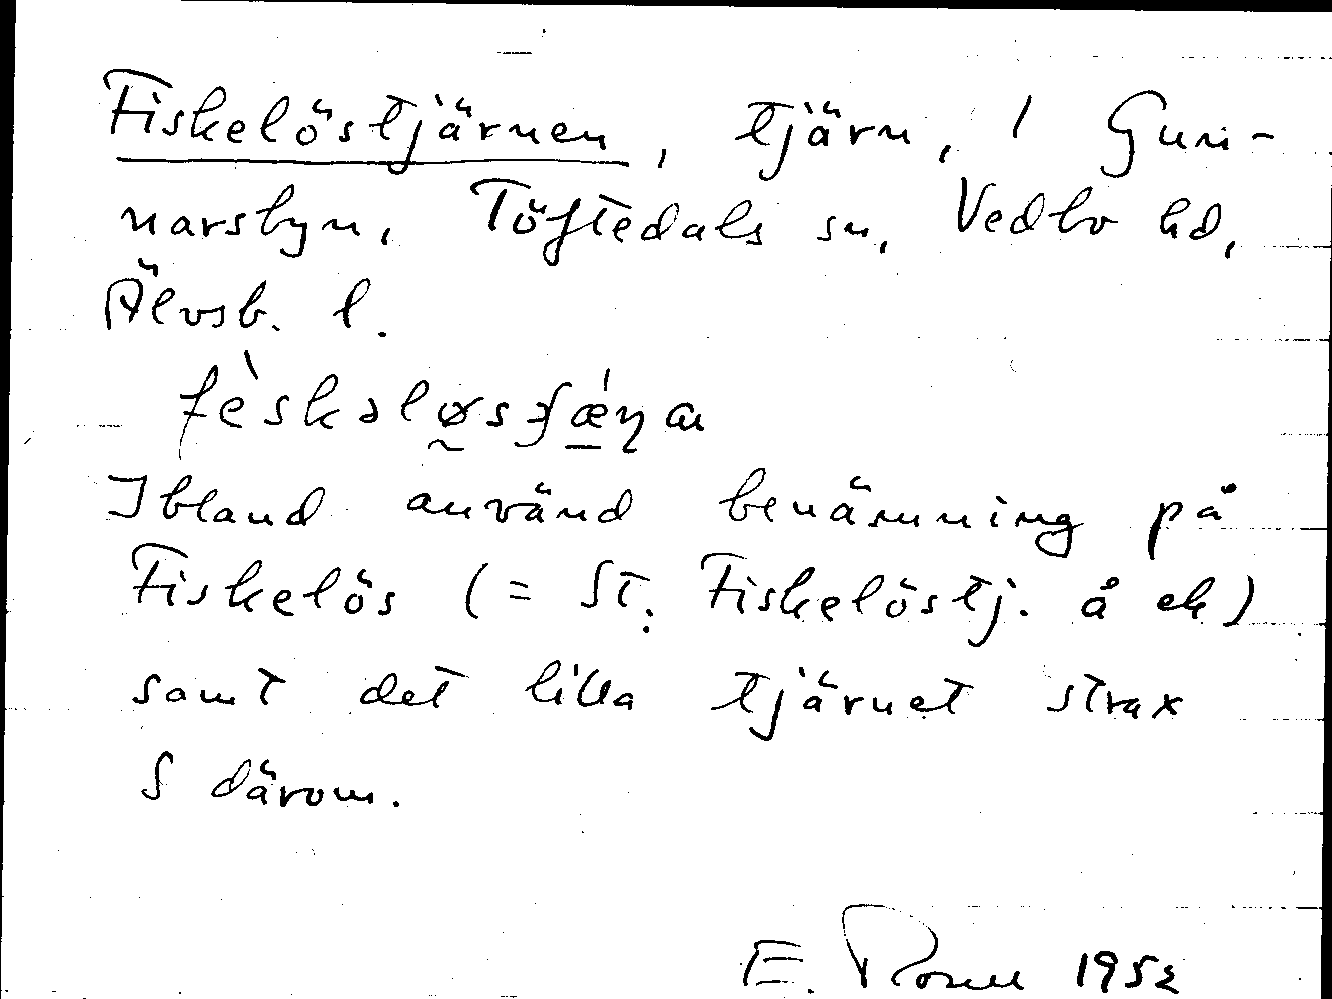 Fiskelöstjärnen, tjärn, / Gun-
narsbyn, Töftedals sn, Vedbo hd,
Älvsb. l.
Ibland använd benämning på
Fiskelös (= St. Fiskelöstj. å ek)
samt det lilla tjärnet strax
S därom.
E. 1952